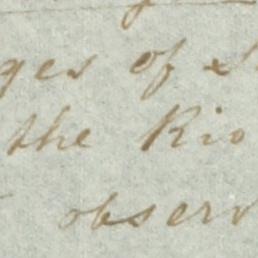 ges of
the Rio
observ